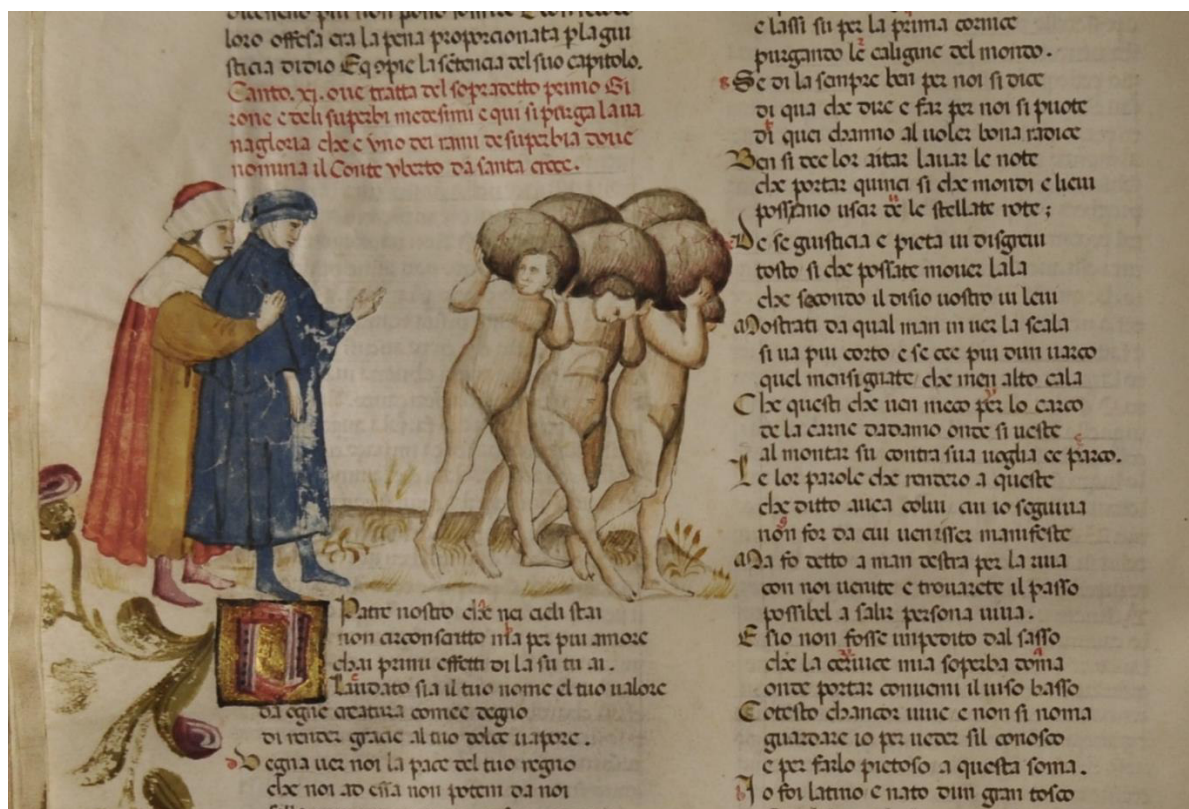 dicendo piu non posso
loro offesa era la pena proporcionata p la giu
sticia di dio Eq opie la sētencia del suo capitolo.
Canto. xj. oue tratta del sopradetto primo Gi
rone e deli superbi medesimi e qui si purga la ua
nagloria che e vno dei rami de superbia doue
nomina il Conte vberto da santa
Patre nostro che nei cieli stai
non circonscritto ma per piu amore
chai primi effetti di la su tu ai.
Laudato sia il tuo nome el tuo valore
da ogne creatura comee degno
di render gracie al tuo dolce uapore.
Vegna uer noi la pace del tuo regno
che noi ad essa non potem da noi
e lassi su per la prima cornice
purgando le caligine del mondo.
Se di la sempre ben per noi si dice
di qua che dire e far per noi si puote
di quei channo al uoler bona radice
Ben si dee lor aitar lauar le note
che portar quinci si che mondi e lieui
possano uscir de le stellate rote;
De se guisticia e pieta ui disgreui
tosto si che possate mouer lala
che secondo il disio uostro ui leui
Mostrati da qual man in uer la scala
si ua piu corto e se cee piu dun uarco
quel mensignate che men alto cala
Che questi che uen meco per lo carco
de la carne dadamo onde si ueste
al montar su contra sua uoglia ee parco.
Le lor parole che rendero a queste
che ditto auea colui cui io seguiua
non for da cui uenisser manifeste
Ma fo detto a man destra per la riua
con noi uenite e trouarete il passo
possibel a salir persona uiua.
E sio non fosse impedito dal sasso
che la ceruice mia soperba doma
onde portar conuiemi il uiso basso
Cotesto chancor uiue e non si noma
guardare io per ueder sil conosco
e per farlo pietoso a questa soma.
Io foi latino e nato dun gran tosco